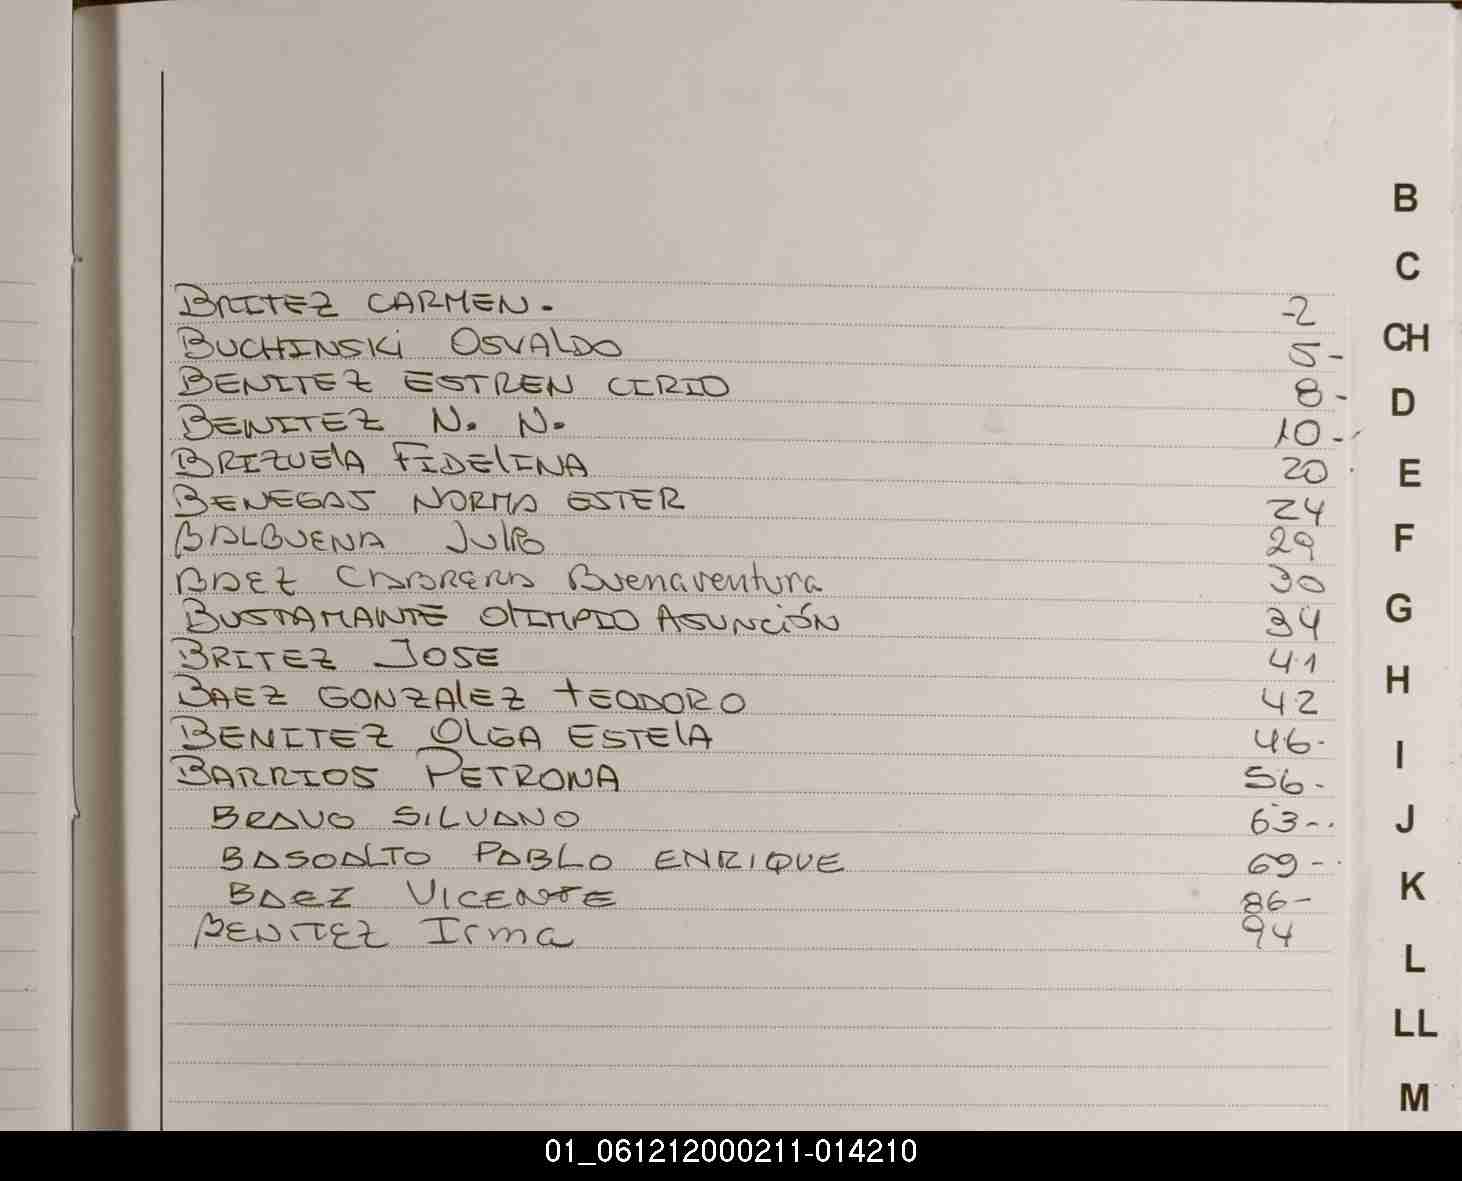 BRITEZ CARMEN. -2
BUCHINSKi OSVALDO 5-
BENITEZ ESTREN CIRIO 8-
BENITEZ N. N. 10-
BRIZUElA FIDElINA 20
BENEGAS NORMA ESTER 24
BALBUENA Julio 29
BAEZ CABRERA Buenaventura 30
BUSTAMANTE OlIMPIO ASUNCiÓN 34
BRITEZ JOSE 41
BAEZ GONZAlEZ TEODORO 42
BENITEZ OLGA ESTElA 46-
BARRIOS PETRONA 56-
BRAVO SILVANO 63-
BASOALTO PABLO ENRIQUE 69-
BAEZ VICENTE 86-
BENITEZ Irma 94
B
C
CH
D
E
F
G
H
I
J
K
L
LL
M
01_061212000211-014210